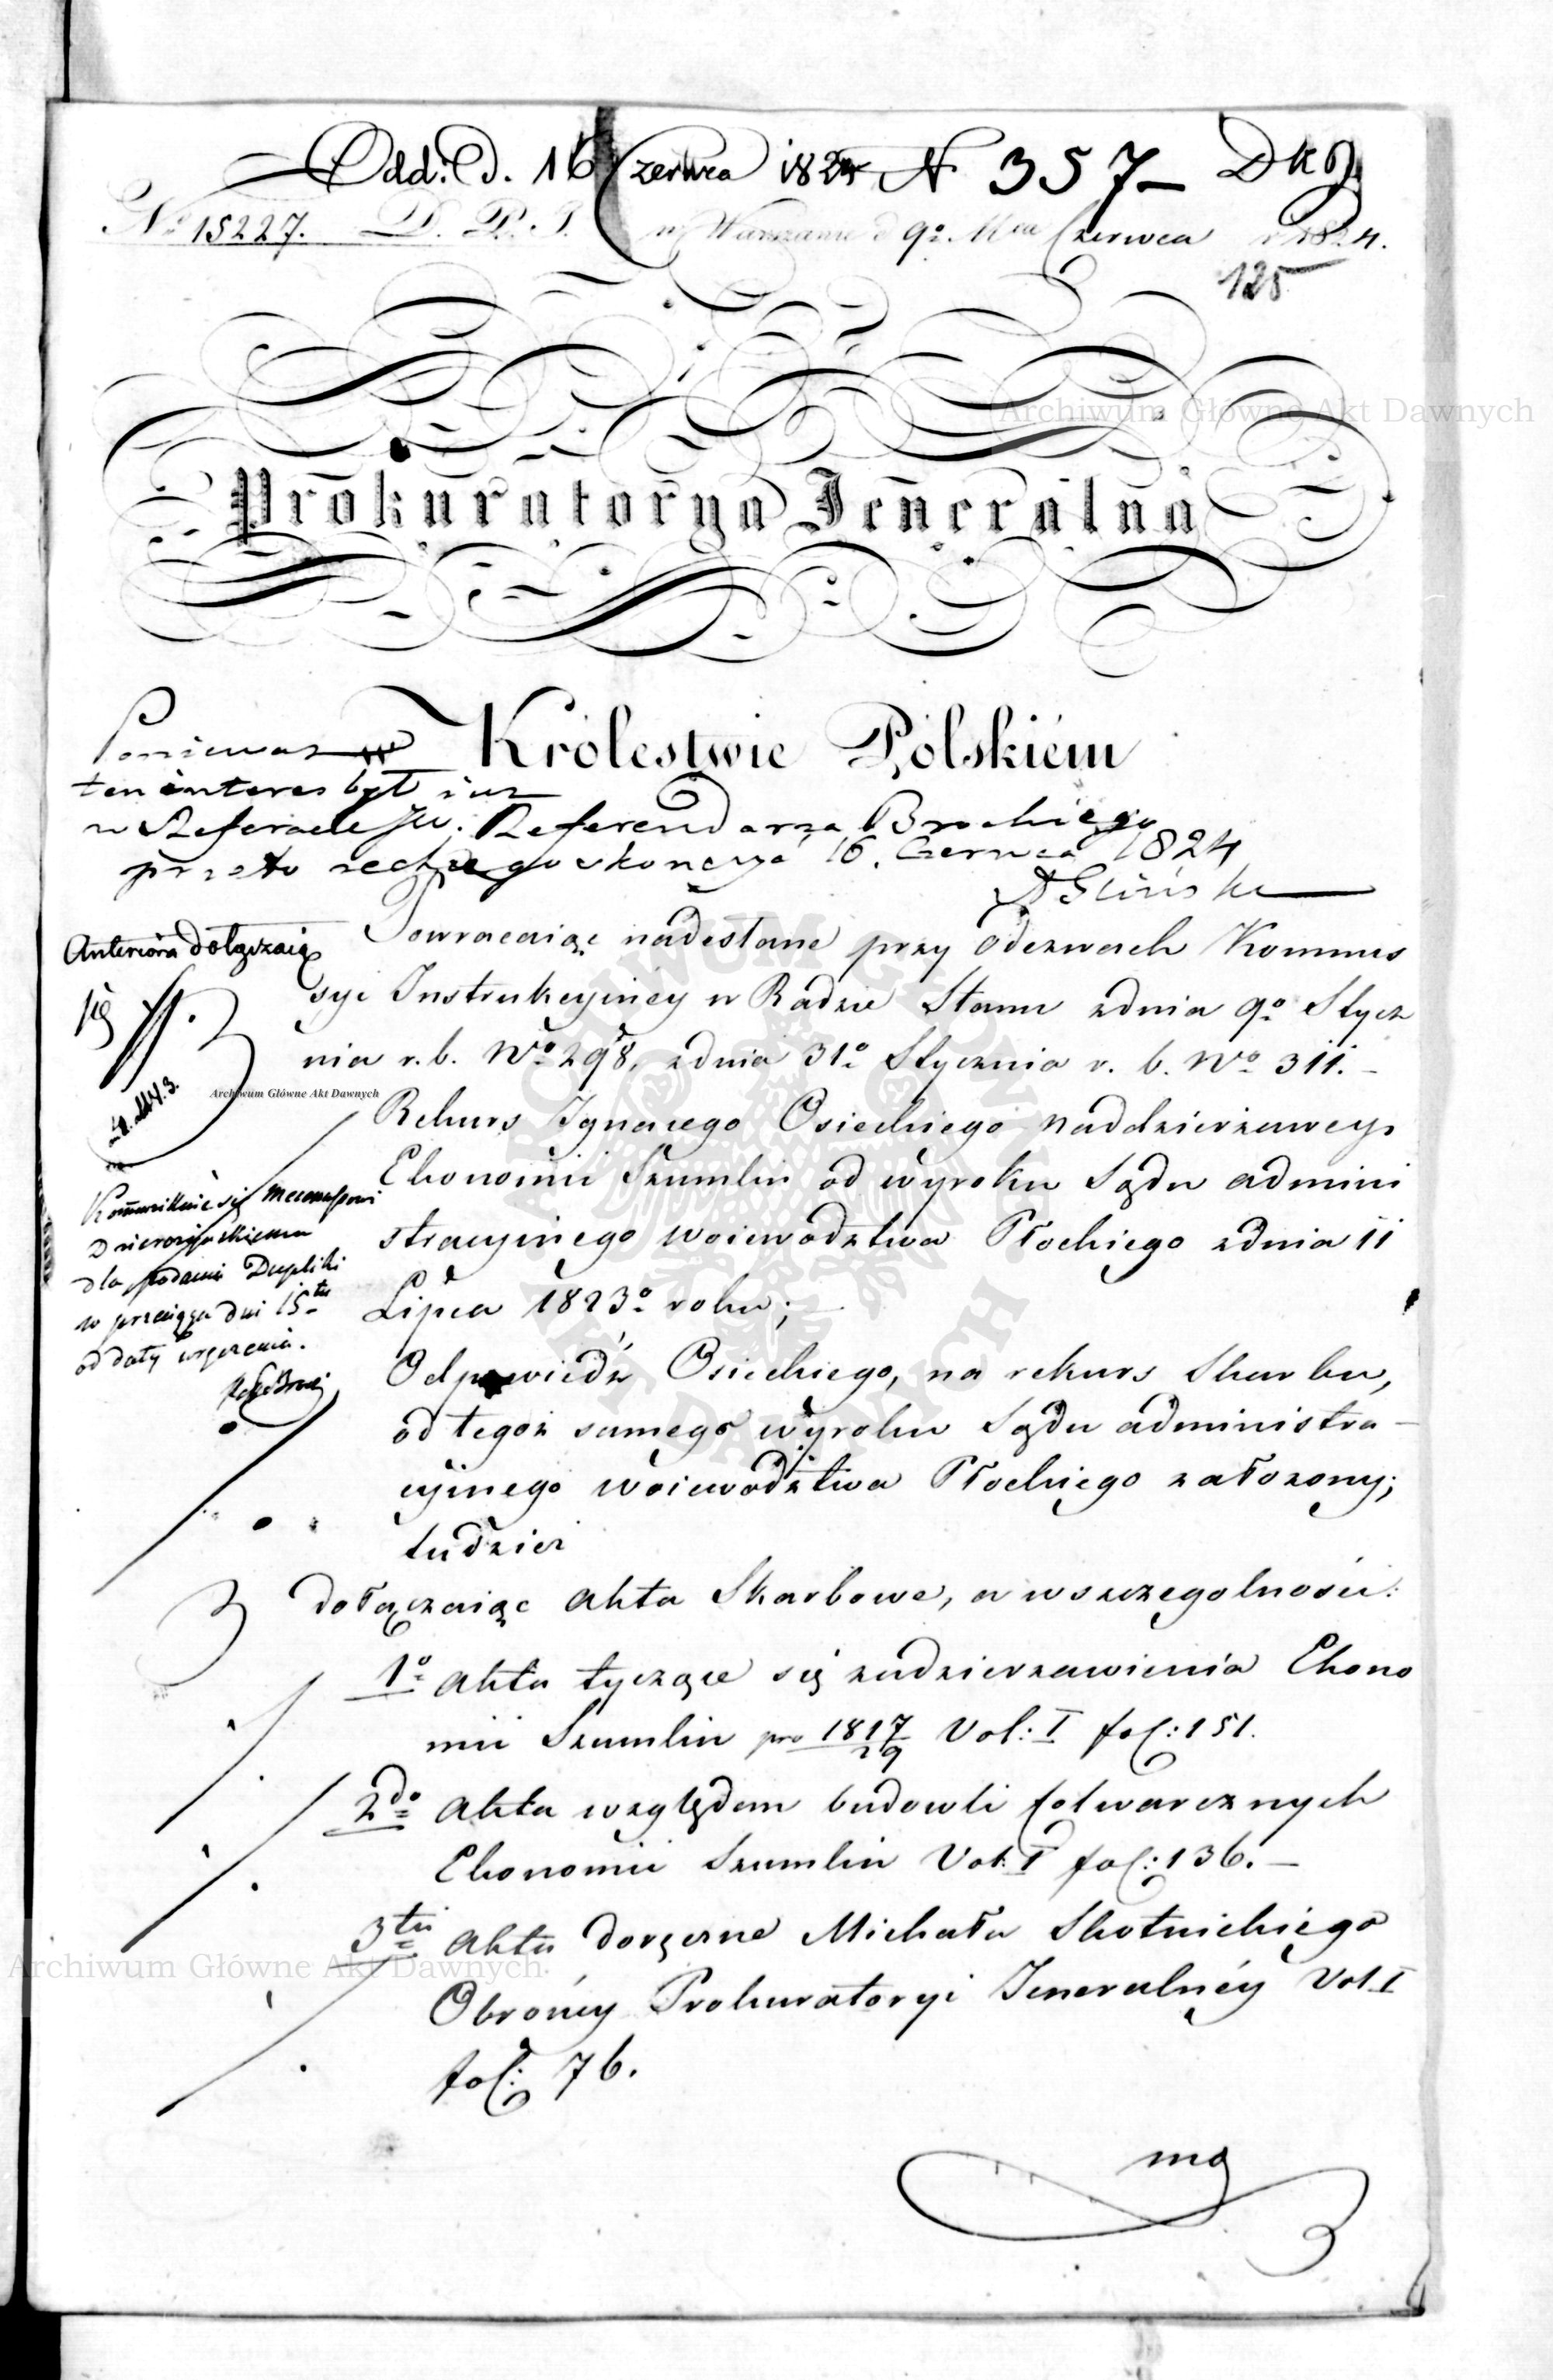 Odd: d. 16 Czerwca 1824 N 357
No 15227. D. P. J. w Warszawie d 9o Mca Czerwca r 1824.
125
Archiwum Główne Akt Dawnych
Prokuratorya Jeneralna
w Królestwie Polskiém
Poniewaz
ten interes był iuz
w Referacie JW. Referendarza Brockiego
przeto zechce go skonczyć 16. Czerwca 1824
A Glinski
Anteriora dołączaią
Powracaiąc nadesłane przy odezwach Kommis
syi Instrukcyinéy w Radzie Stanu zdnia 9o Stycz
nia r. b. No 298, zdnia 31o Stycznia r. b. No 311.
Archiwum Główne Akt Dawnych
Rekurs Ignacego Osieckiego naddzierzawcy
Ekonomii Szumlin od wyroku Sądu admini
stracyinego woiewodztwa Płockiego zdnia 11
Lipca 1823o roku;
Kommunikuie się Mecenasowi
dla podania Dupliki
w przeciągu dni 15tu
od daty wręczenia.
Odpowiedź Osieckiego, na rekurs Skarbu,
od tegoż samego wyroku Sądu administra-
cyinego woiewodztwa Płockiego założony;
tudzież
dołączaiąc akta Skarbowe, a wszczegolności:
1o akta tyczące się zadzierzawienia Ekono
mii Szumlin pro 1817/29 Vol: I fol: 151.
2do akta względem budowli folwarcznych
Ekonomii Szumlin Vol: I fol: 136.
3tio akta doręczne Michała Skotnickiego
Archiwum Główne Akt Dawnych
Obrońcy Prokuratoryi Jeneralnéy Vol I
fol: 76.
ma